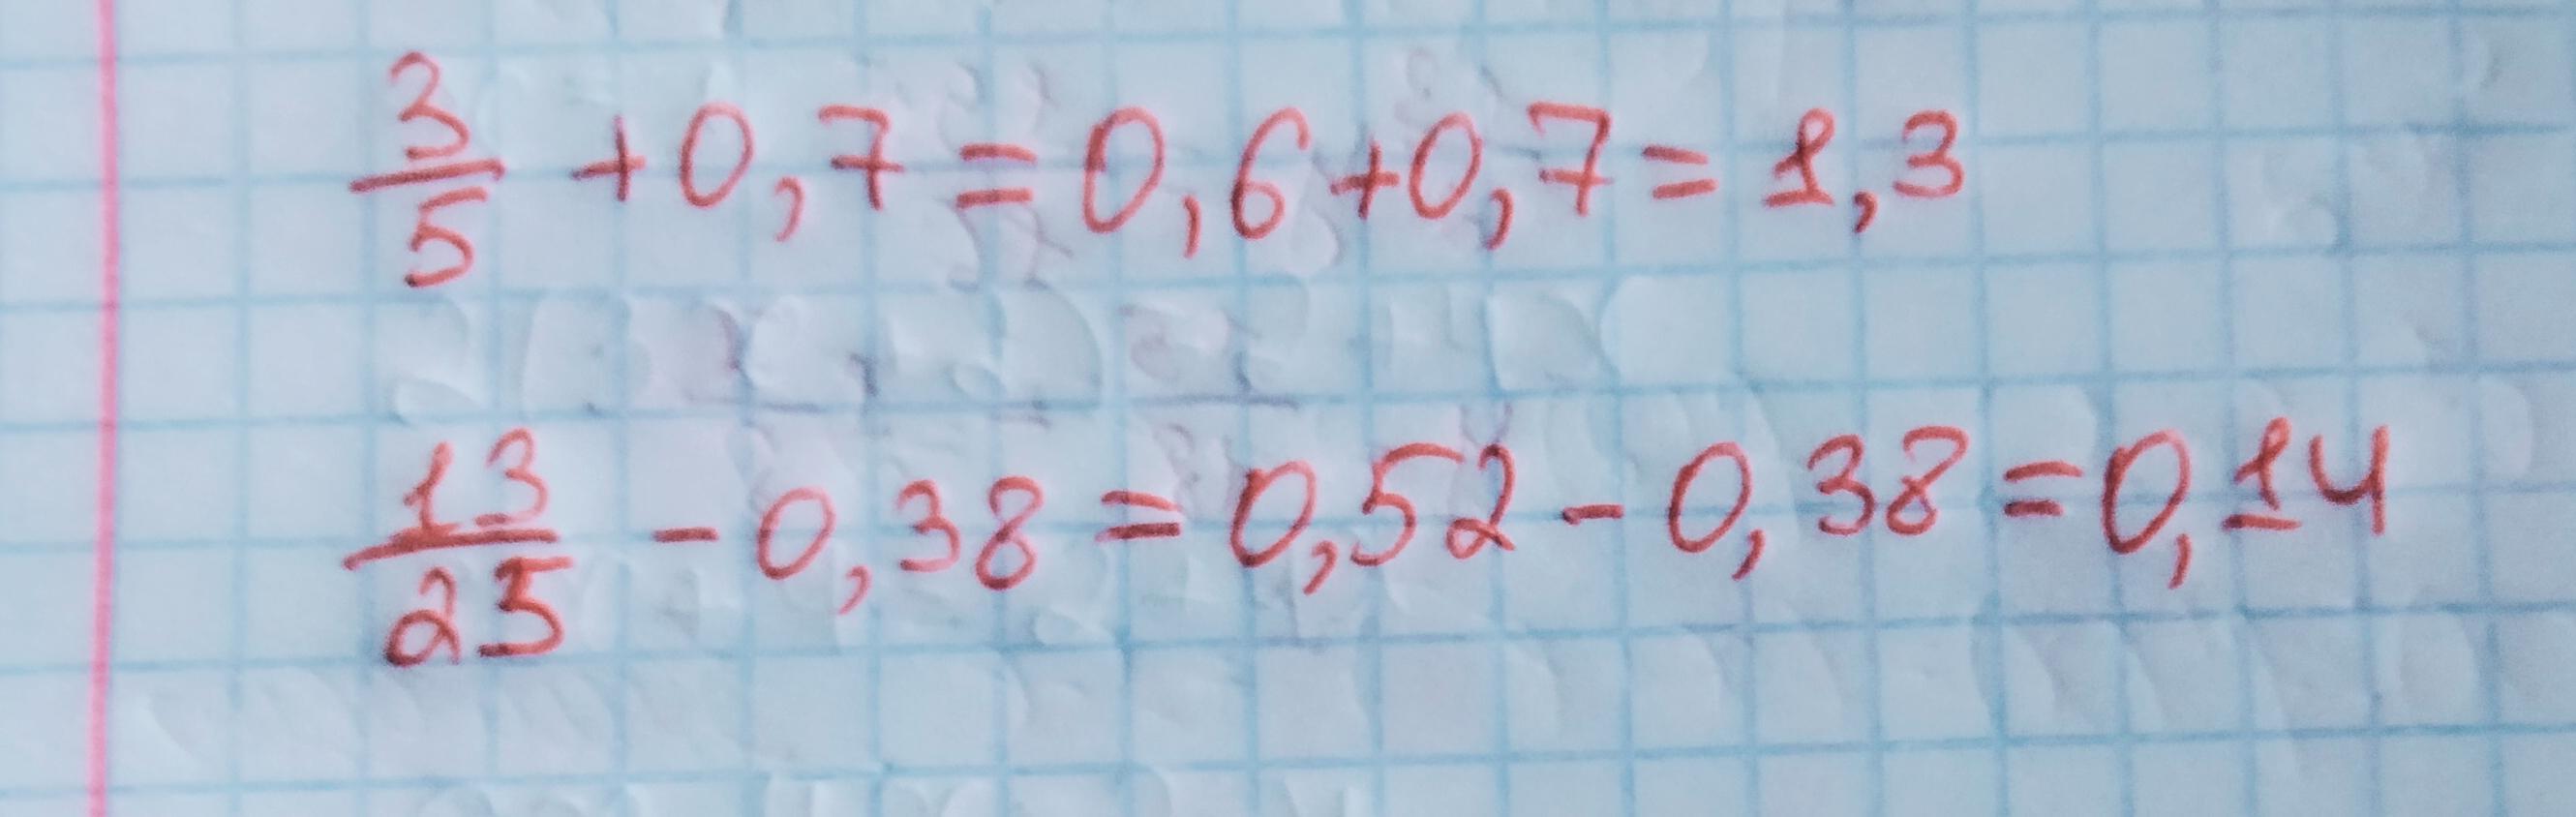 3/5 + 0,7 = 0,6 + 0,7 = 1,3
13/25 - 0,38 = 0,52 - 0,38 = 0,14